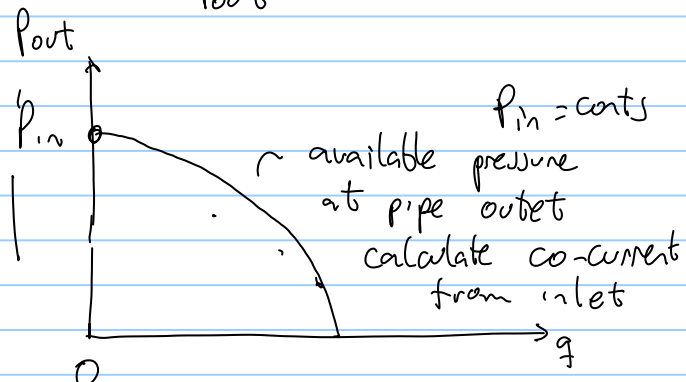 Pout
Pin
Pin = conts
available pressure
at pipe outet
calculate co-current
from inlet
q
O